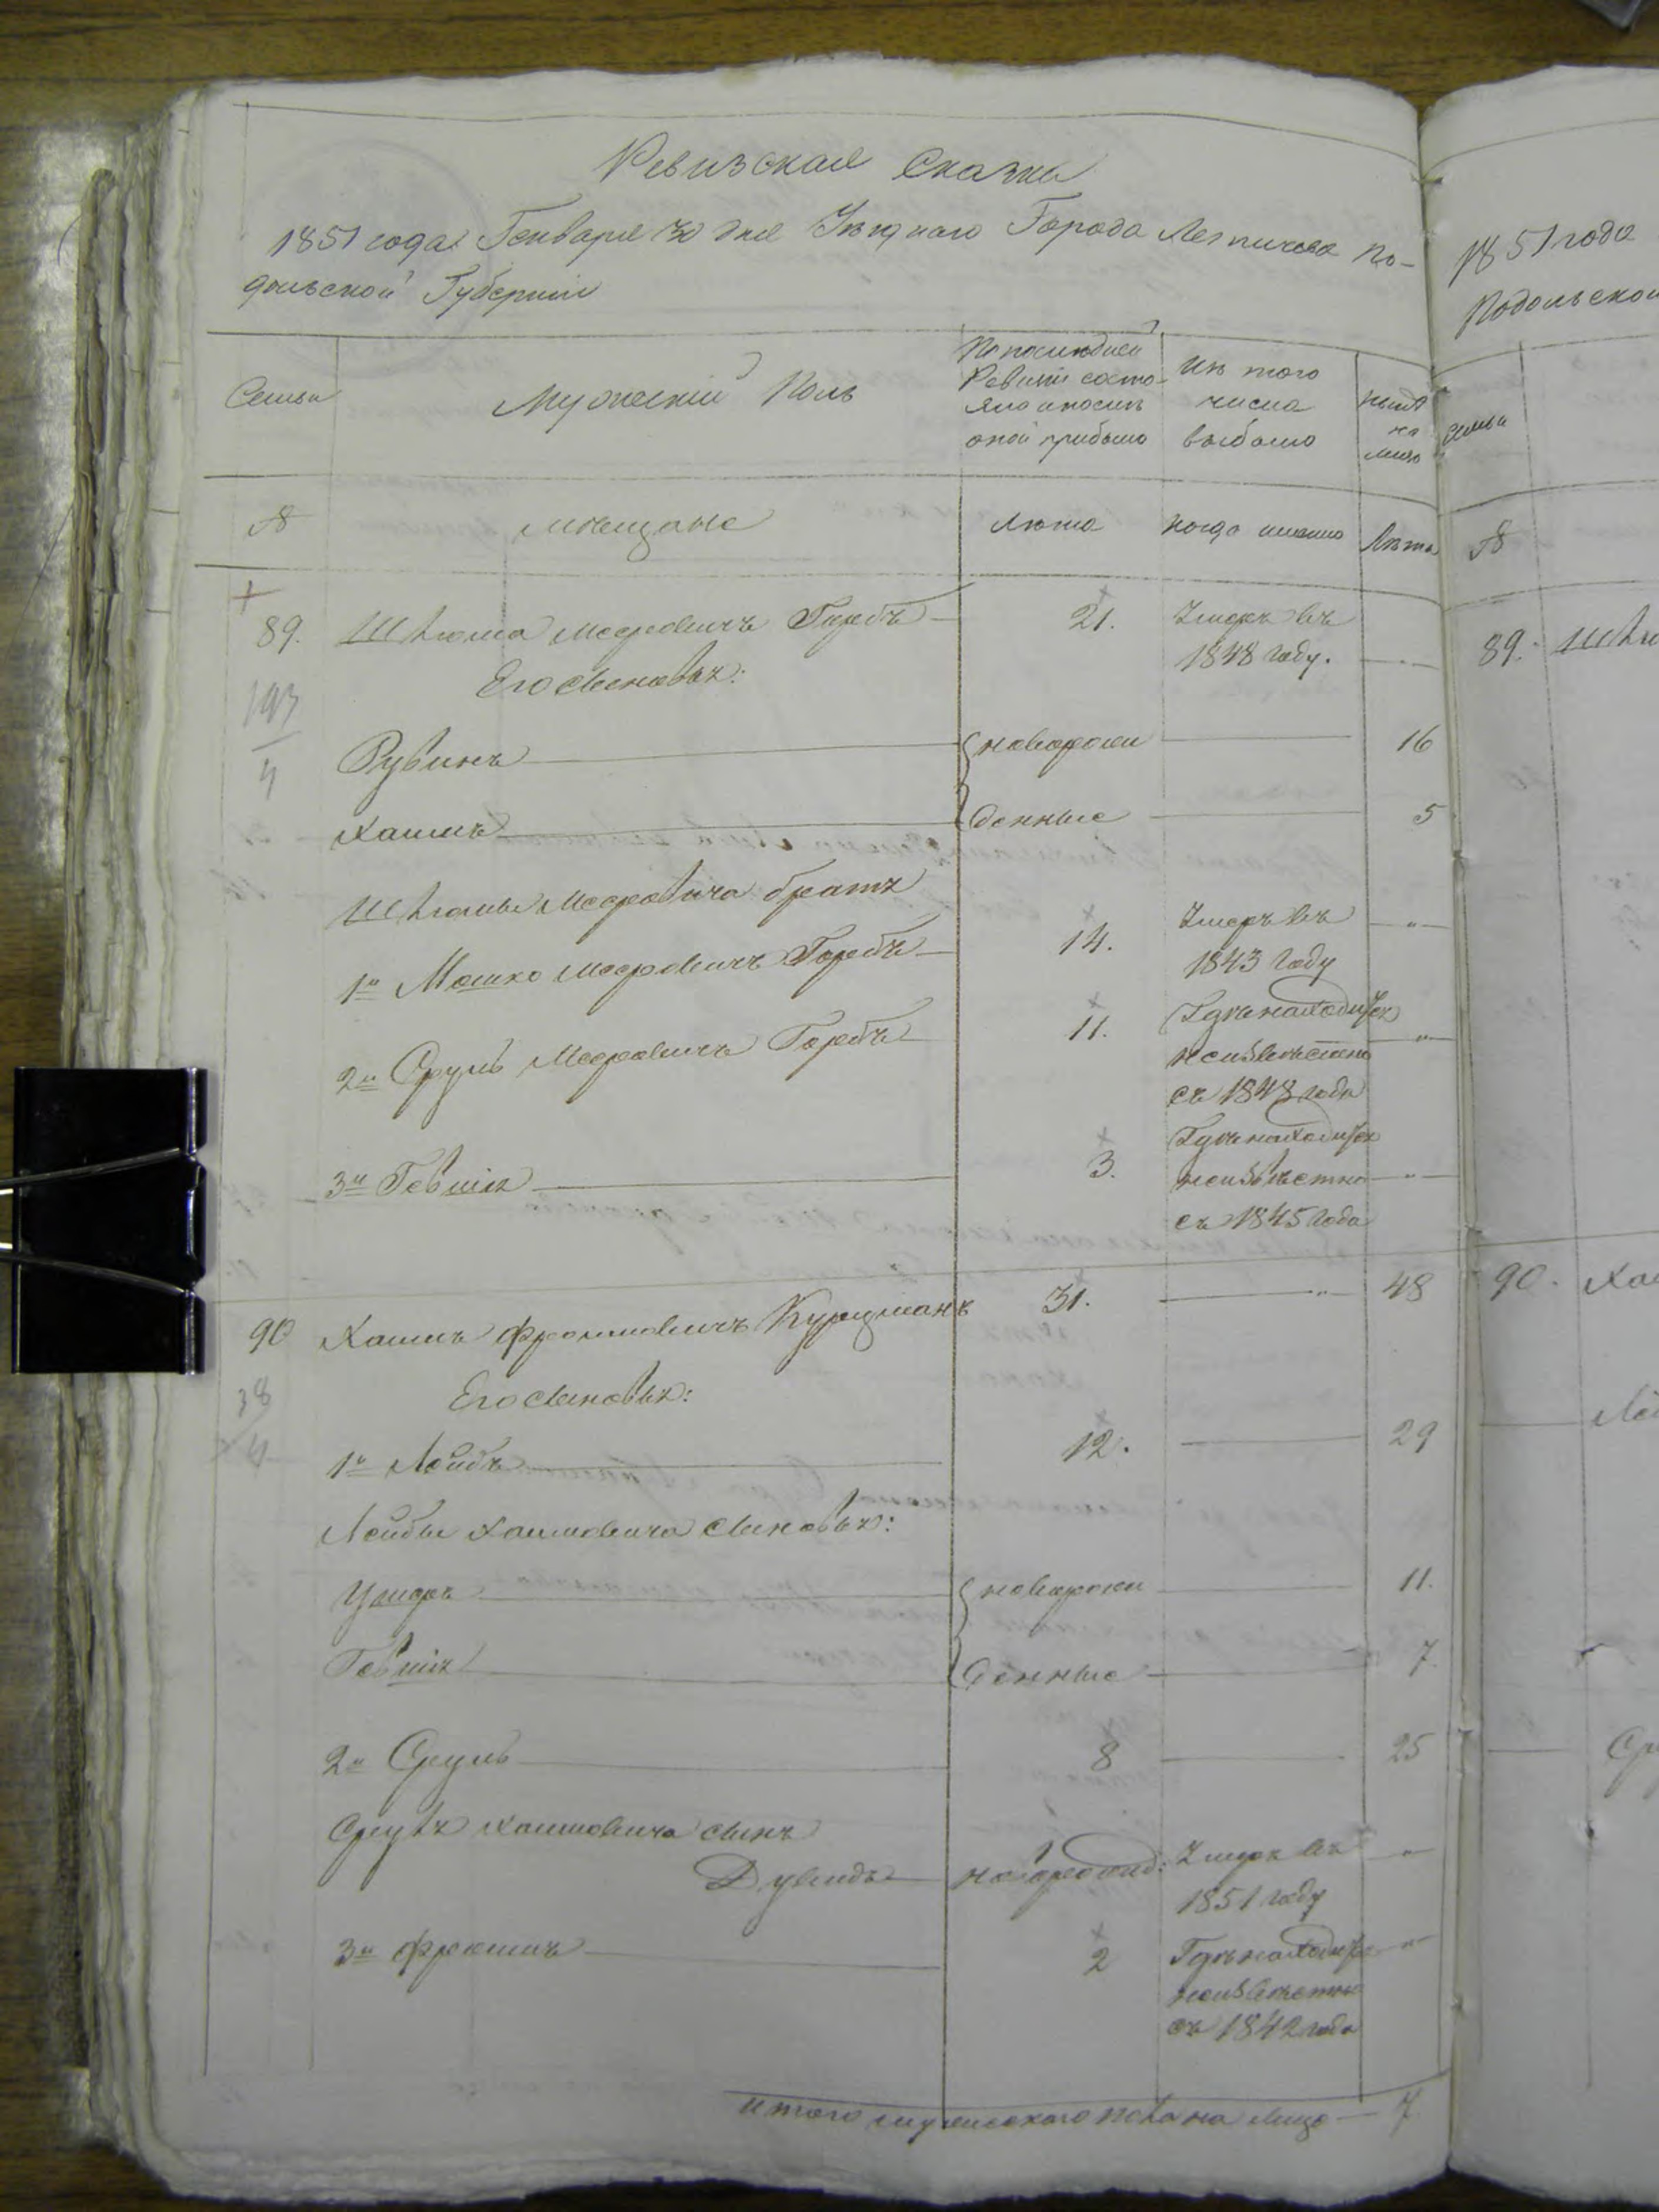 Ревизская Сказка
1851 года Генваря 30 дня Уезднаго Города Летичева По-
дольской Губерніи
Семьи
Мужескій Полъ
По последней Ревизіи состо-яло и после оной прибыло
Изъ того числа выбыло
Ныне на лицо
№
мещане
Лета
когда именно
Лета
89. Шлиома Мееровичъ Горбъ 21. Умеръ въ
1848 году.
Его сыновья:
193
4
Рувинъ новорож 16
Хаимъ денные 5
Шлиомы Мееровича братья
1й Мошко Мееровичъ Горбъ 14. Умеръ въ
1843 году
2й Сруль Мееровичъ Горбъ 11. Где находится
неизвестно
съ 1848 года
3й Говшія 3. Где находится
неизвестно
съ 1845 года
90 Хаимъ Фроимовичъ Курцманъ 31. 48
Его сыновья:
38
4
1й Лейбъ 12. 29
Лейбы Хаимовича сыновья:
Ушеръ новорож 11.
Говшія денные 7.
2й Сруль 8 25
Сруля Хаимовича сынъ
Дувидъ новорожд: Умеръ въ
1851 году
3й Фроимъ 2 Где находится
неизвестно
съ 1842 года
Итого мужескаго пола на лицо 7
1851 года
Подольской
семьи
№
89. Шлио
90. Хаи
Лей
Ср